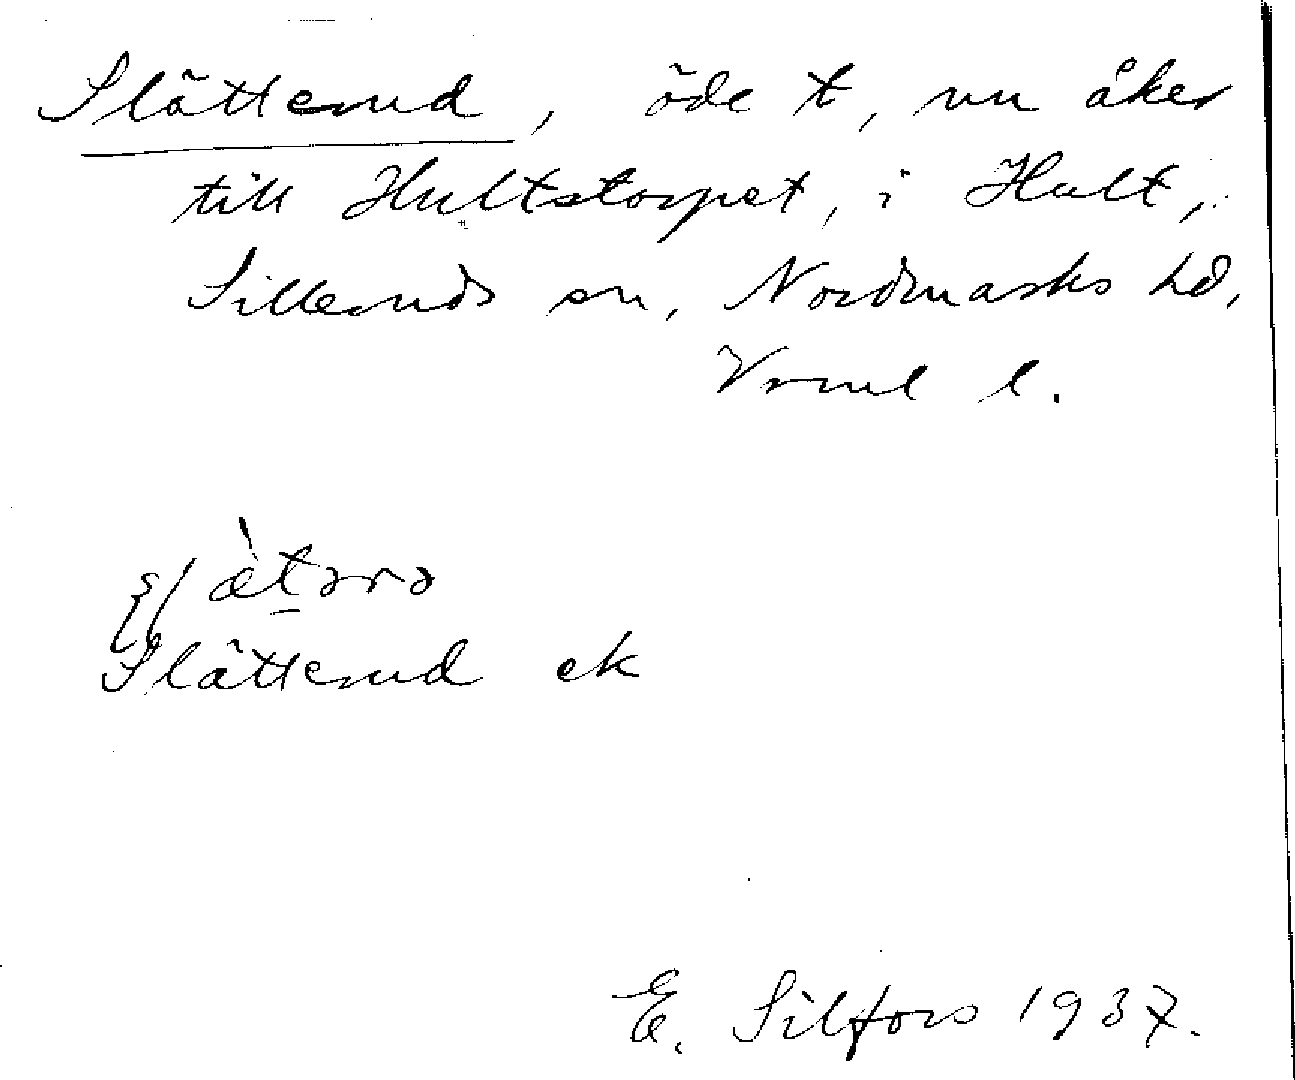 Slätterud, öde t, nu åker
till Hultstorpet, i Hult,
Silleruds sn, Nordmarks hd,
Vrml l.
Slätterud ek
E. Silfors 1937.